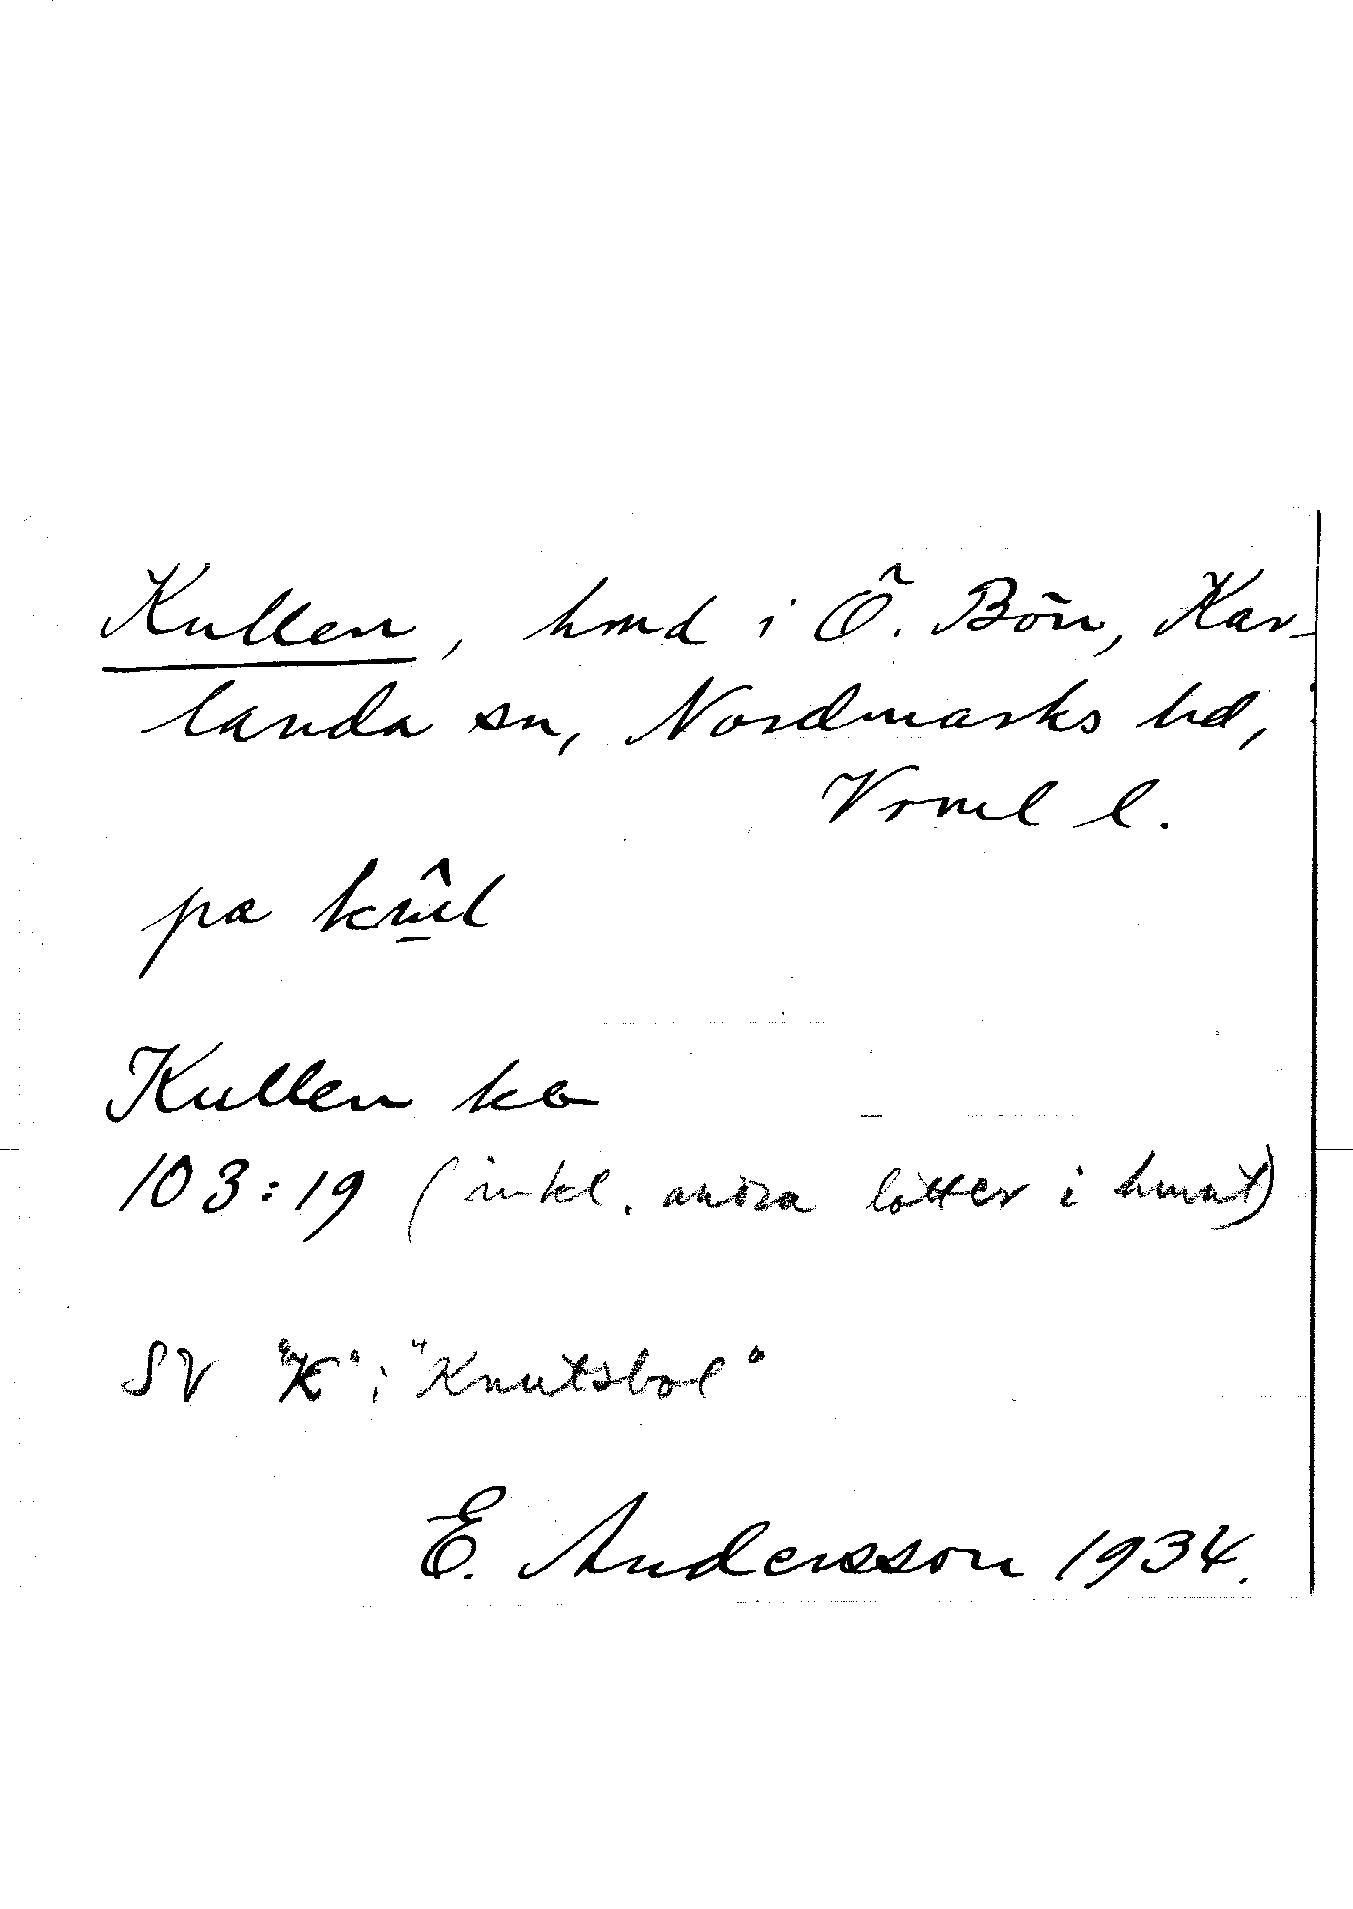 Kullen, hmd i Ö. Bön, Kar-
landa sn, Nordmarks hd,
Vrml l.
pa
Kullen ka
103:19 (inkl. andra lotter i hmnt)
SV "K" i "Knutsbol"
E. Andersson 1934.